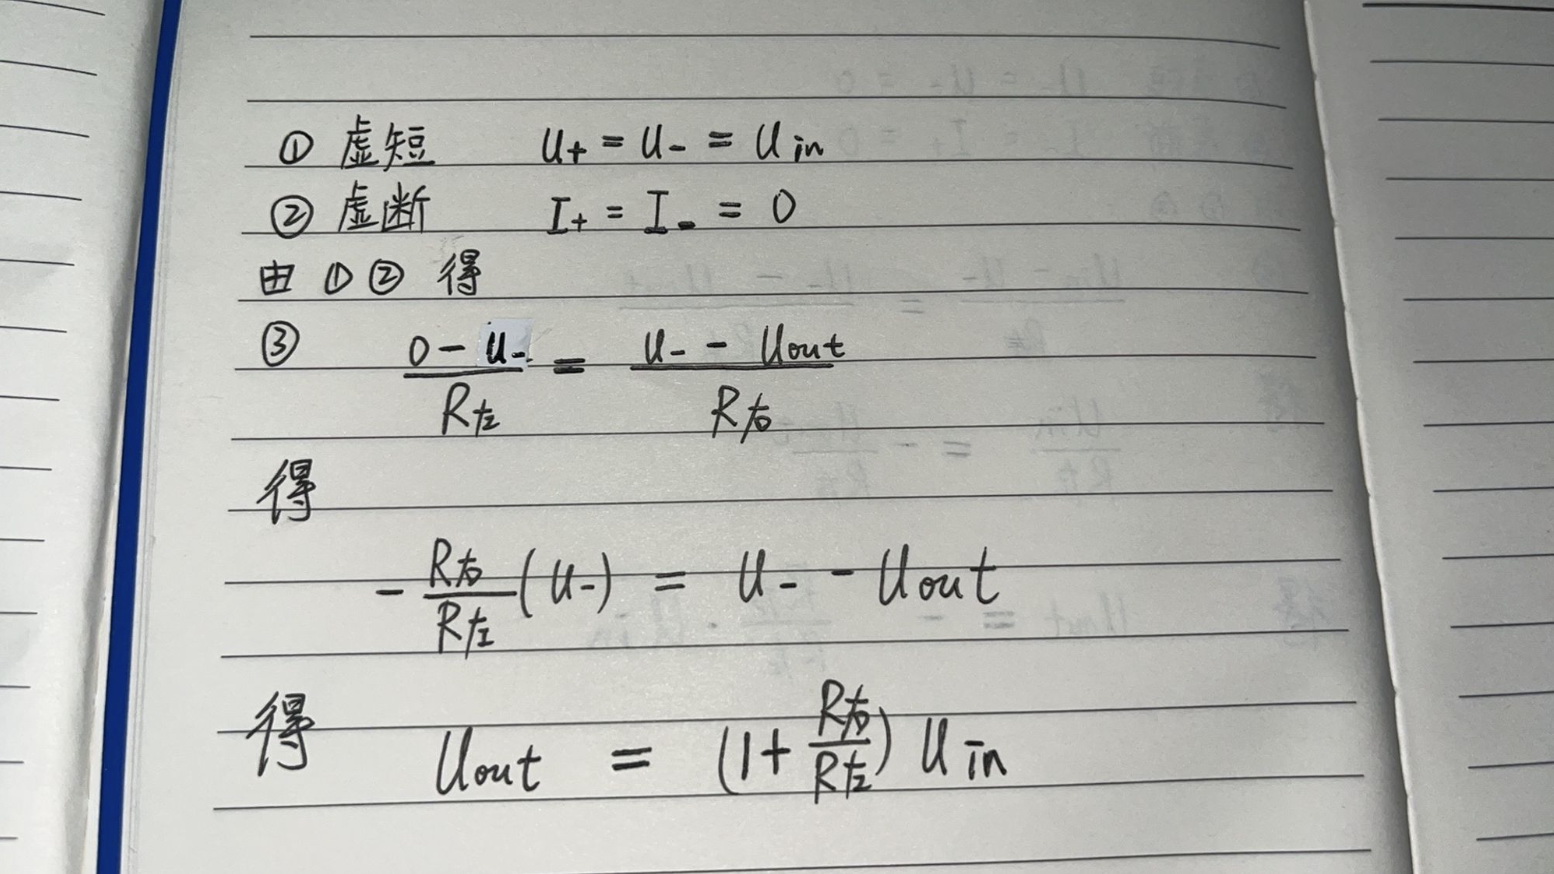 ① 虚短 U+ = U- = Uin
② 虚断 I+ = I- = 0
由 ① ② 得
③ (0 - U-)/R左 = (U- - Uout)/R右
得
- R右/R左 (U-) = U- - Uout
得 Uout = (1 + R右/R左) Uin